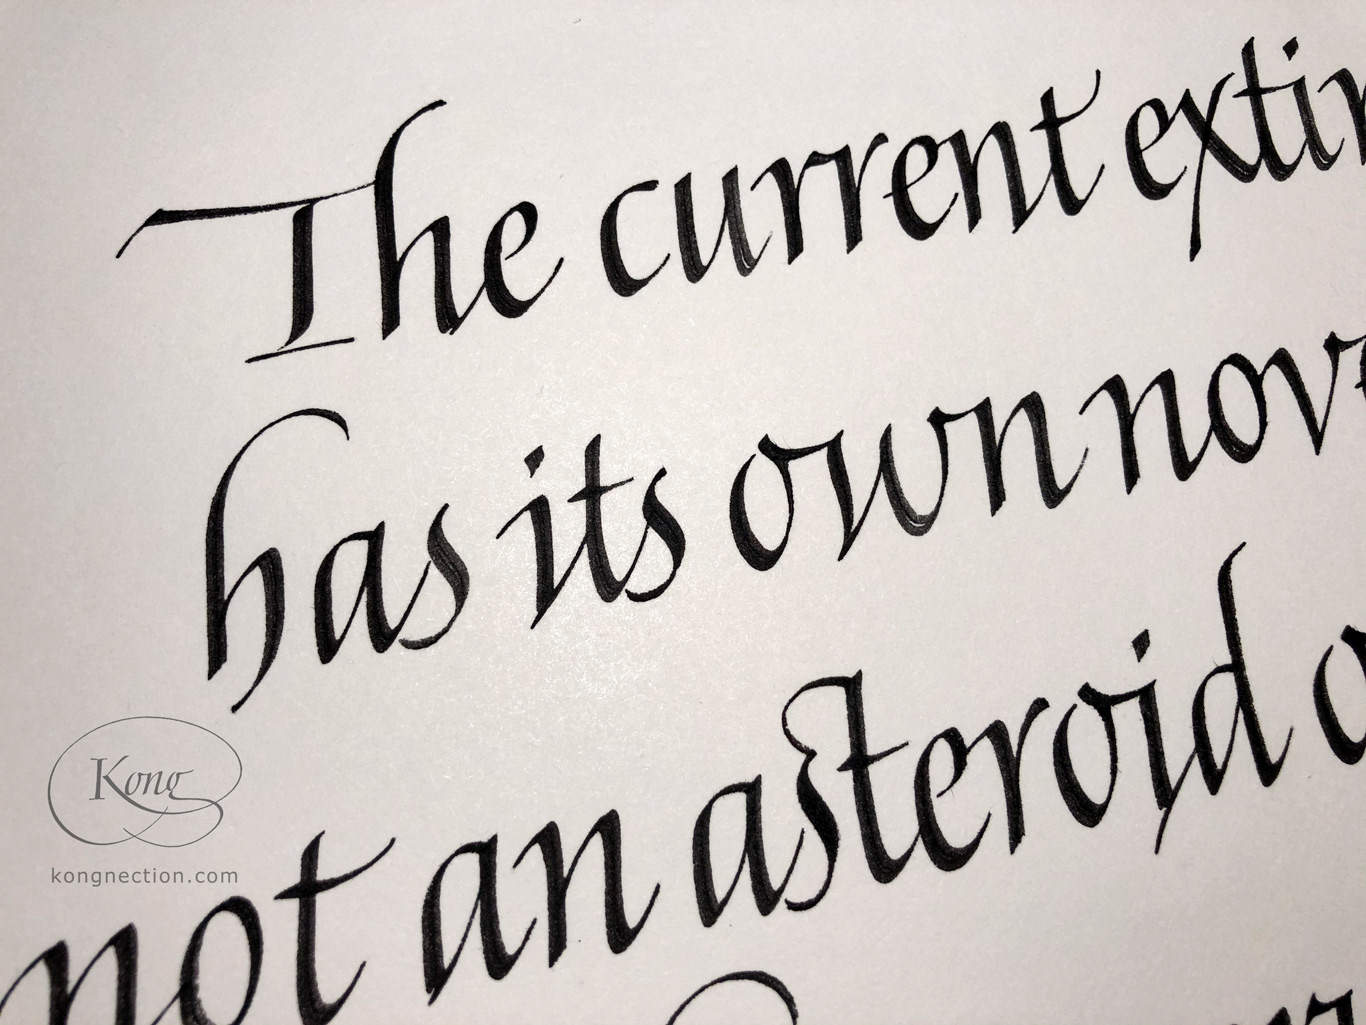 The current extin
has its own nov
not an asteroid o
Kong
kongnection.com